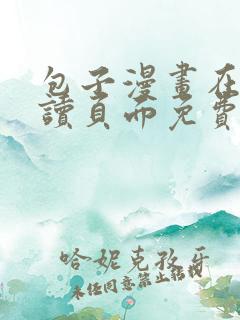 包子漫畫在
讀頁面免費
哈妮克孜牙
未任同意禁止转载